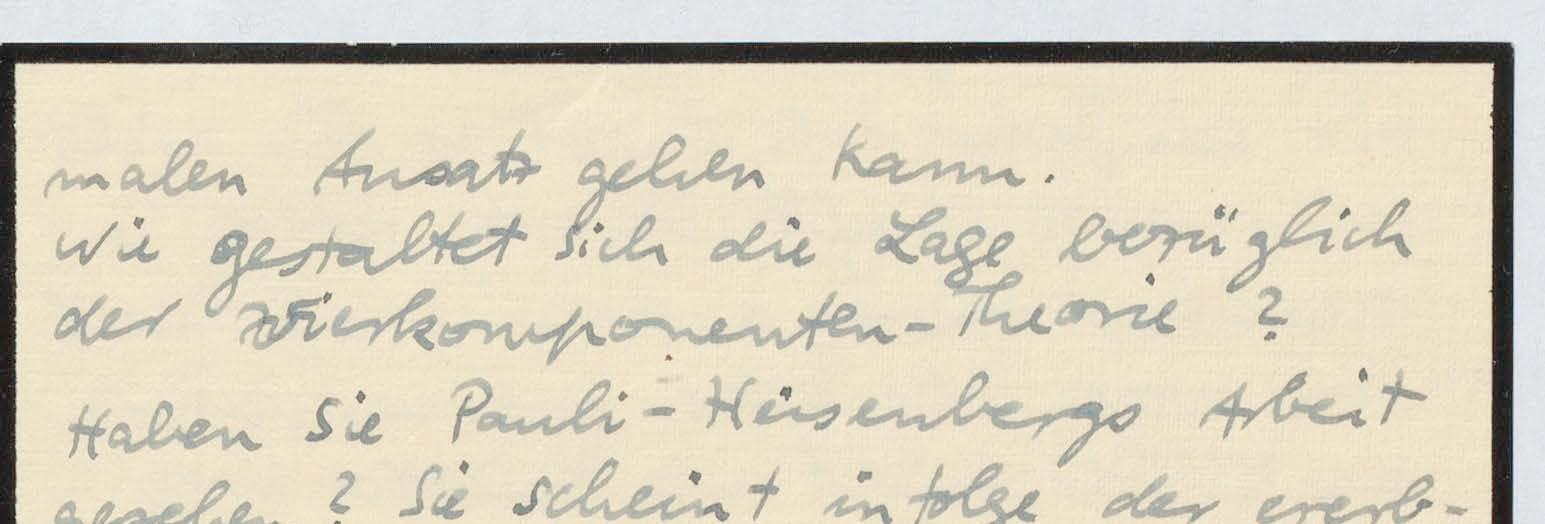 malen Ansatz gehen kann.
Wie gestaltet sich die Lage bezüglich
der Vierkomponenten-Theorie ?
Haben Sie Pauli-Heisenbergs Arbeit
gesehen ? Sie scheint infolge der ererb-